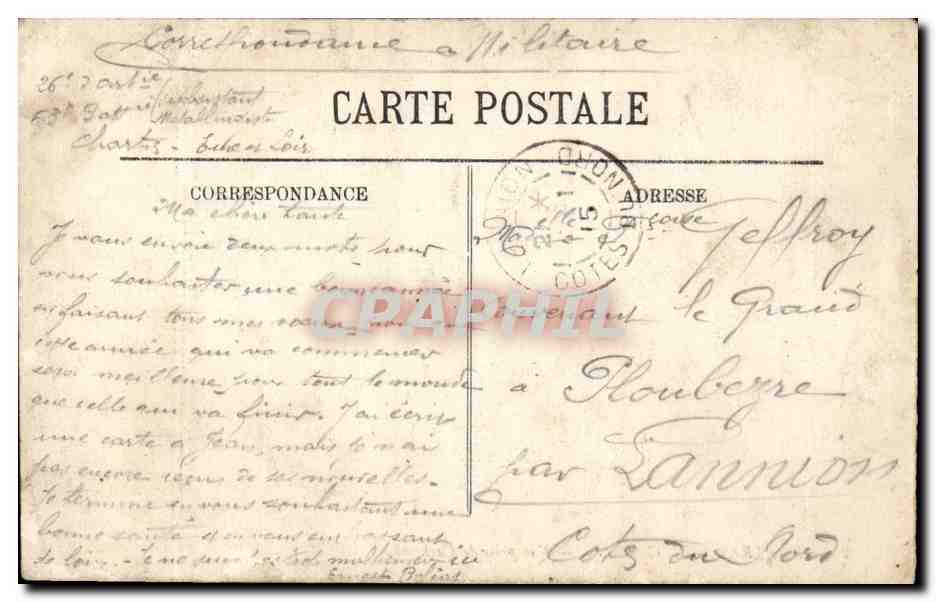 Correspondance Militaire
26e d'artie
Chartres - Eure et Loir
CARTE POSTALE
CORRESPONDANCE
ADRESSE
LANNION
COTES DU NORD
1
15
Ma chère tante
Je vous envoie deux mots pour
vous souhaiter une bonne année
en faisant tous mes vœux pour que
cette année qui va commencer
sera meilleure pour tout le monde
que celle qui va finir. J'ai écrit
une carte à Jean, mais je n'ai
pas encore reçus de ses nouvelles.
Je termine en vous souhaitant une
bonne santé et en vous embrassant
de loin.
Ernest
Geffroy
Convenant le Grand
à Ploubezre
par Lannion
Cotes du Nord
CPAPHIL